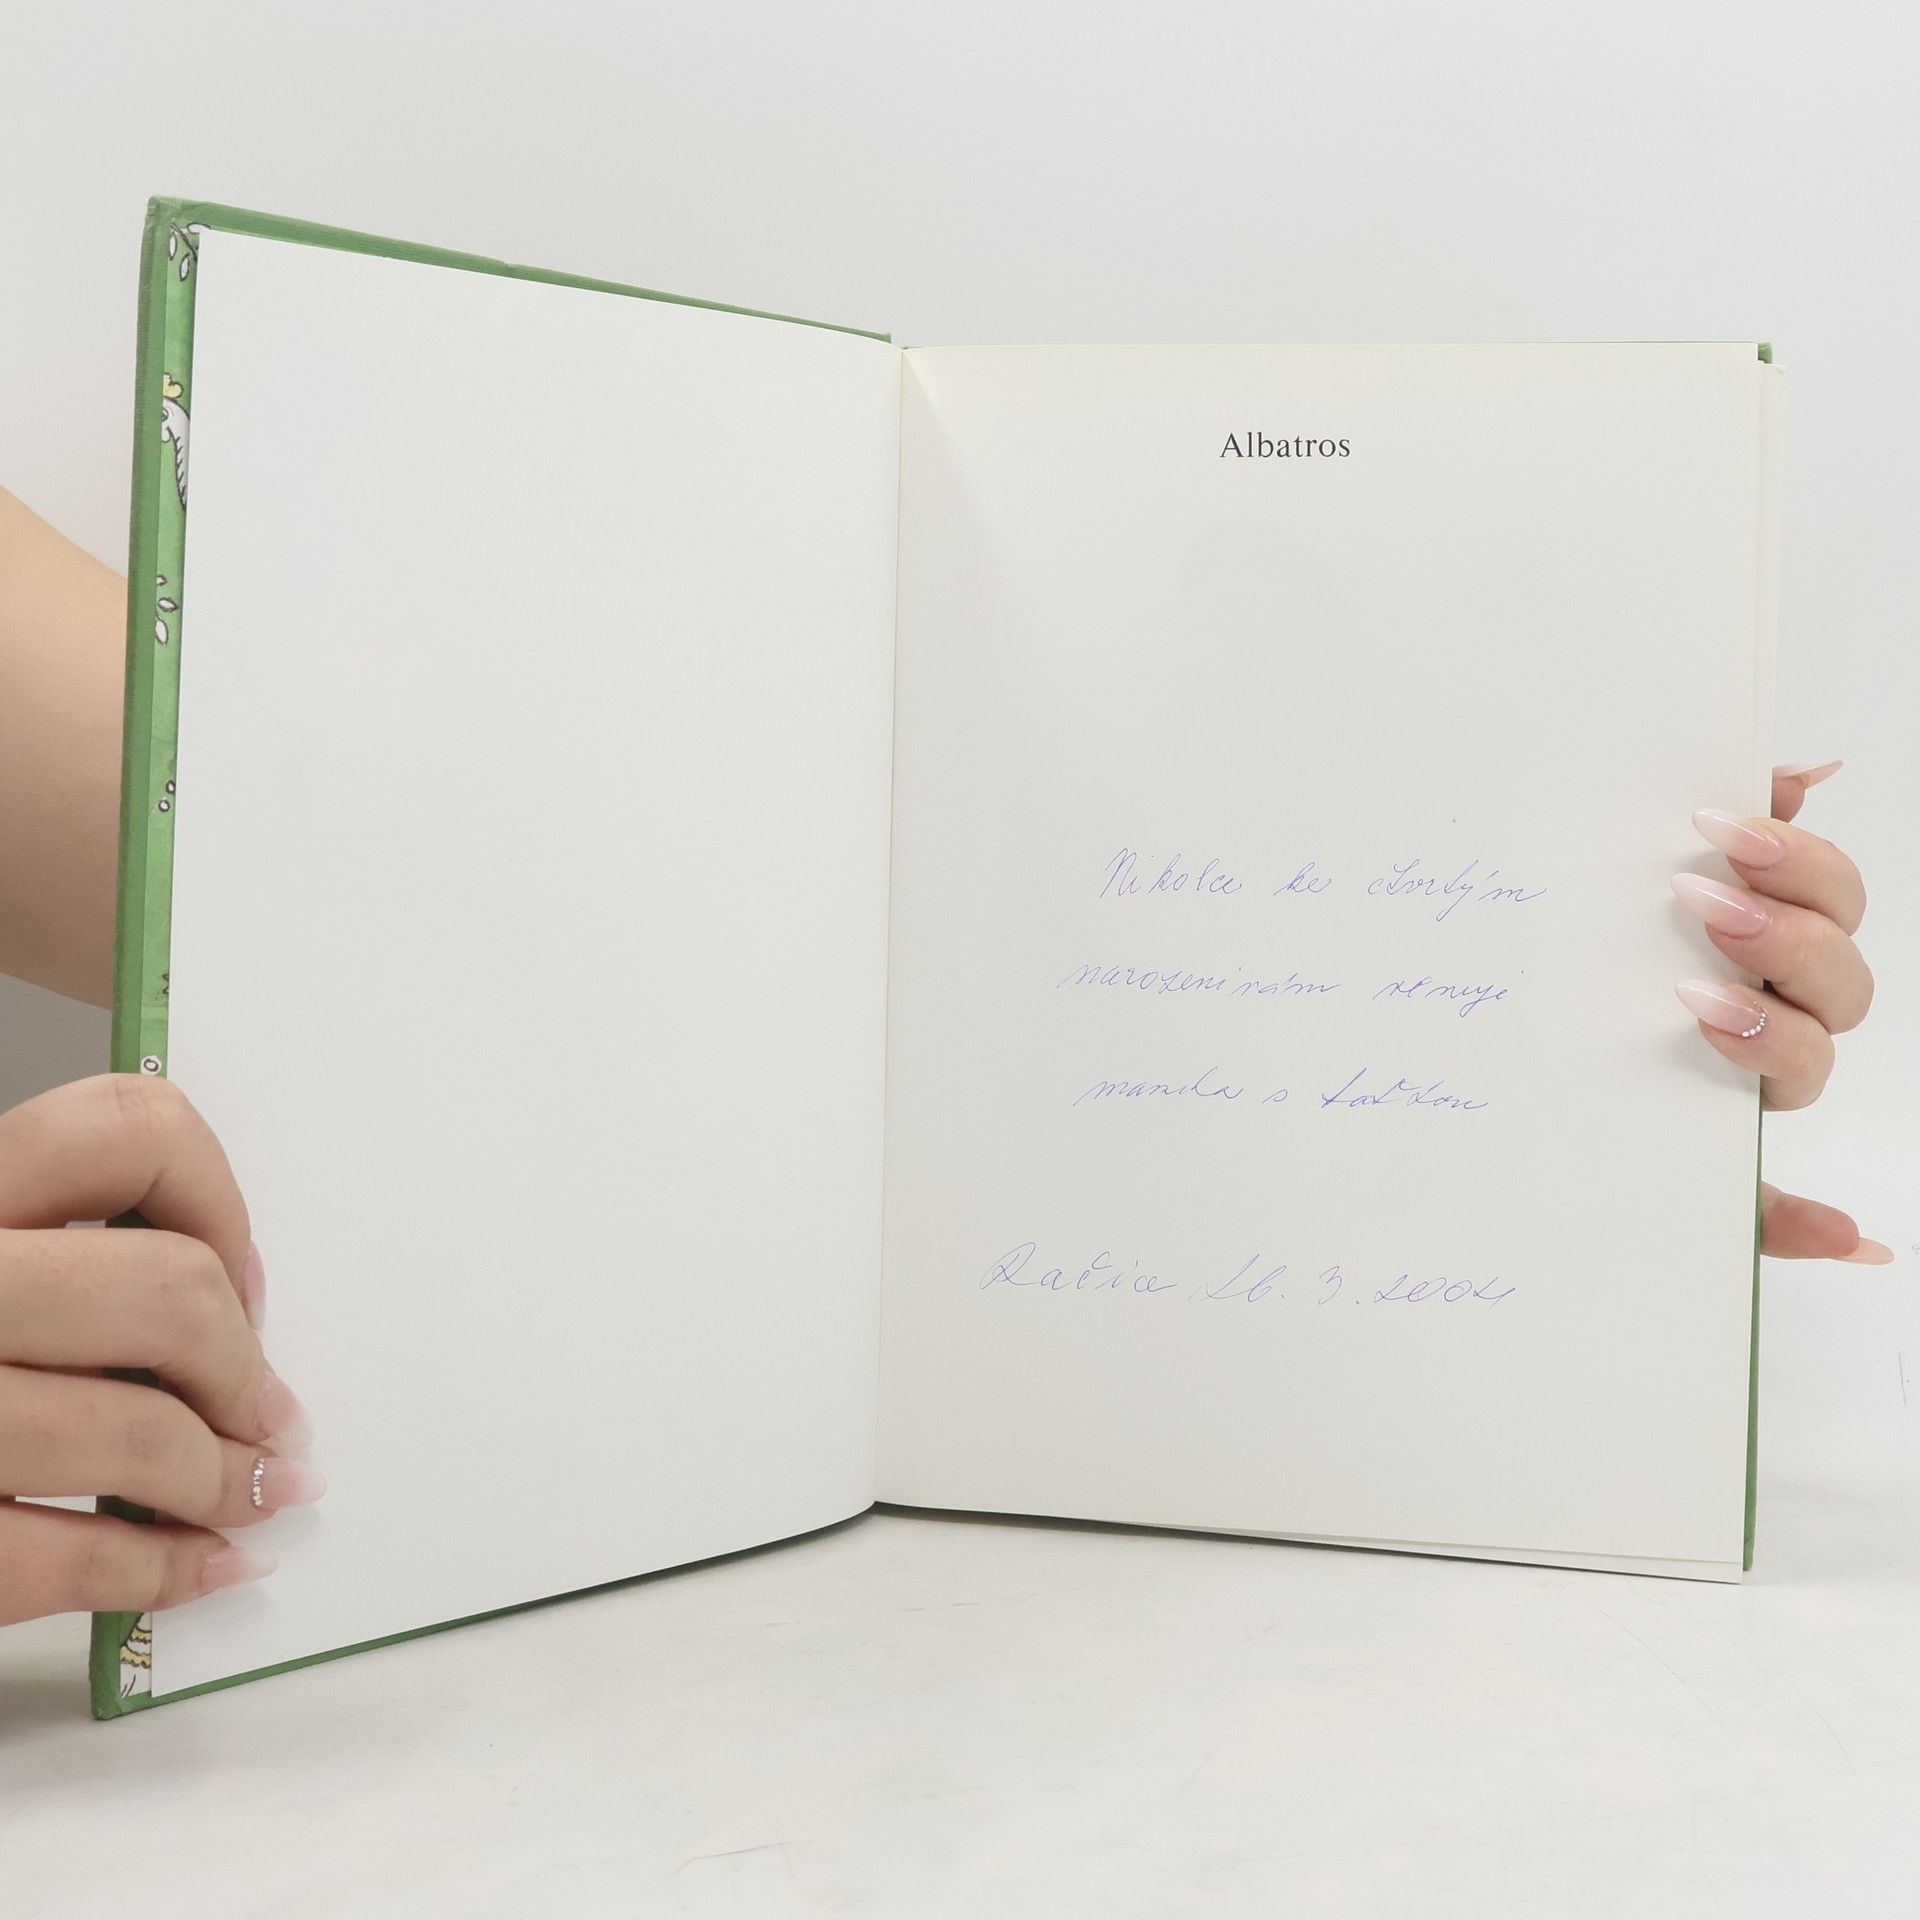 Albatros
Nikolce ke čtvrtým
narozeninám věnuje
mamka s taťkou
Račice 26. 3. 2004